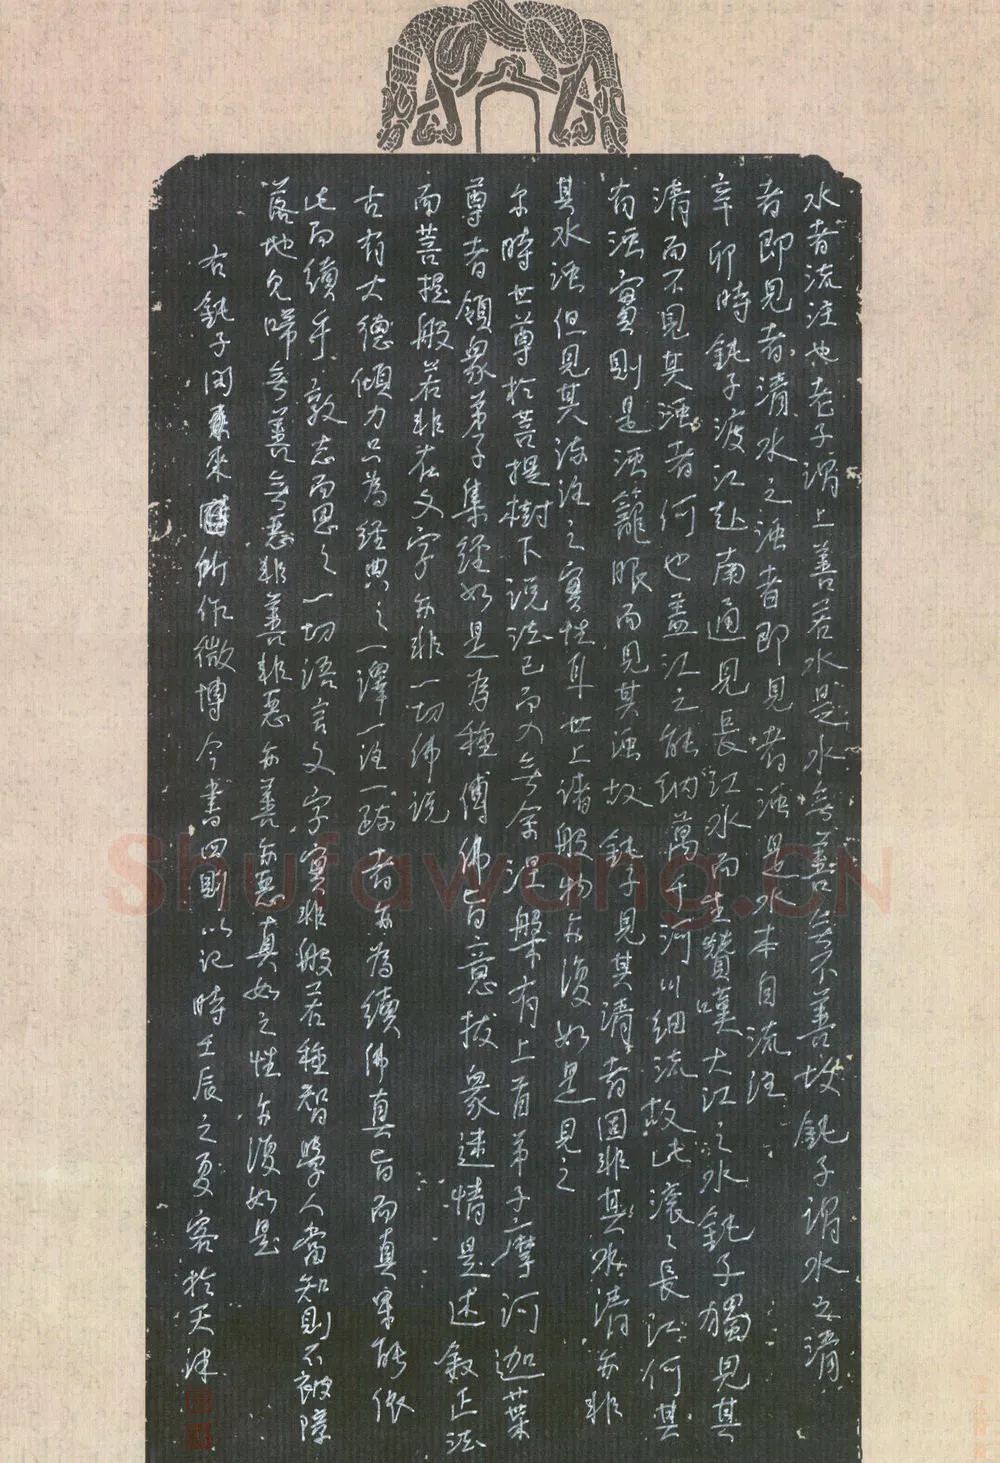 水者流注也老子谓上善若水是水無善無不善故鈍子谓水之清
者即見者清水之浊者即見者浊是水本自流注
辛卯時鈍子渡江赴南通見長江水而生贊嘆大江之水鈍子獨見其
清而不見其浊者何也盖江之能纳萬千河川细流故此滚々長江何其
有浊實則是浊籠眼而見其浊故鈍子見其清者固非其水清亦非
其水浊但見其流注之實性耳世上诸般物亦復如是見之
尔時世尊於菩提樹下说法已而入無余涅槃有上首弟子摩诃迦葉
尊者领衆弟子集经如是為種傳佛旨意拔衆迷情是述叙正法
而菩提般若非在文字亦非一切佛说
古有大德倾力只為经典之一譯一注一疏者亦為續佛真旨而真果能依
此而續乎敦志而思之一切语言文字實非般若種智學人當知則不被障
落地見啼無善無惡非善非惡亦善亦惡真如之性亦復如是
右鈍子闲来所作微博今書四則以记時壬辰之夏客於天津
Shufawang.CN